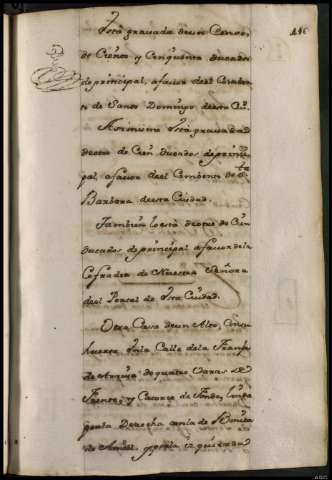 146
Está gravada de un Censo,
de Ciento y Cinquenta Ducados
de principal, a favor del Comben
to de Santo Domingo de esta Ciu.
Asimismo Está gravada
de otro de Cien Ducados de princi
pal, a favor del Combento de Sta
Barbara de esta Ciudad.
Tambien lo está de otro de Cien
Ducados de principal a favor de la
Cofradia de Nuestra Señora
del Portal de Esta Ciudad.
Otra Casa de un Alto, con su
huerto En la Calle de la
de quatro Varas de
Frente, y Catorce de Fondo, linda
por la Derecha con la de Benita
de y por la izquierda